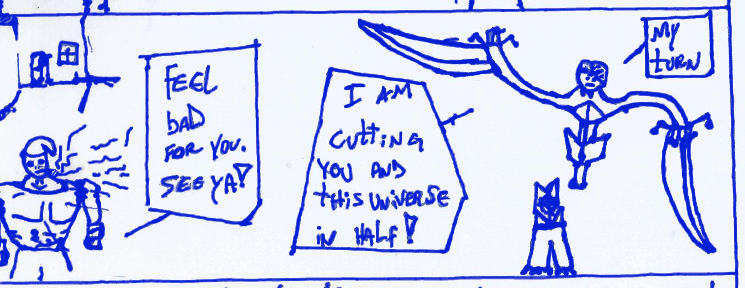 FEEL
bAD
FOR YOU.
SEE YA!
I AM
CUttiNG
YOU AND
tHiS UNiVERSE
iN HALF!
MY
tURN